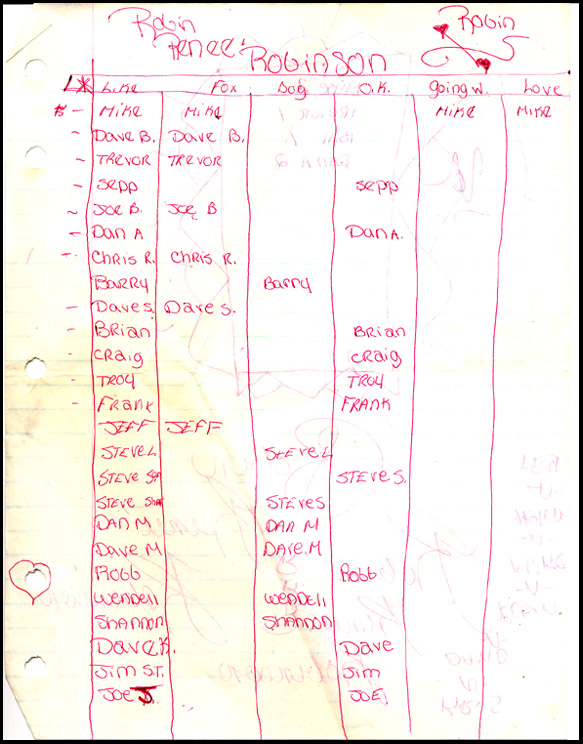 Robin Robin
Renee
Robinson
L* Like Fox Dog O.K. Going w. Love
B - Mike Mike Mike Mike
- Dave B. Dave B.
- Trevor Trevor
- Sepp Sepp
~ Joe B. Joe B
- Dan A Dan A.
- Chris R. Chris R.
Barry Barry
- Dave S. Dave S.
- Brian Brian
- Craig Craig
- Troy Troy
- Frank Frank
Jeff Jeff
Steve L Steve L
Steve Steve S.
Steve Steve S
Dan M Dan M
Dave M Dave M
Robb Robb
Wendell Wendell
Shannon Shannon
Dave K. Dave
Jim St. Jim
Joe J. Joe J